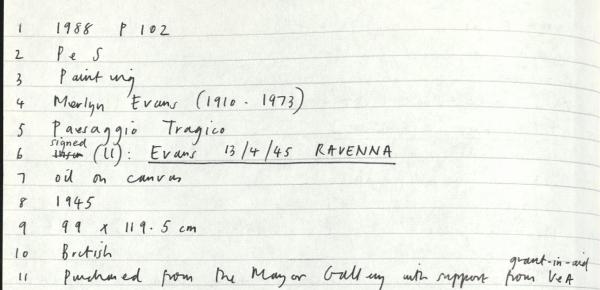 1 1988 P 102
2 P e S
3 Painting
4 Merlyn Evans (1910 - 1973)
5 Paesaggio Tragico
6 signed (ll): Evans 13/4/45 RAVENNA
7 oil on canvas
8 1945
9 99 x 119.5 cm
10 British
11 Purchased from the Mayor Gallery with support from grant-in-aid V&A